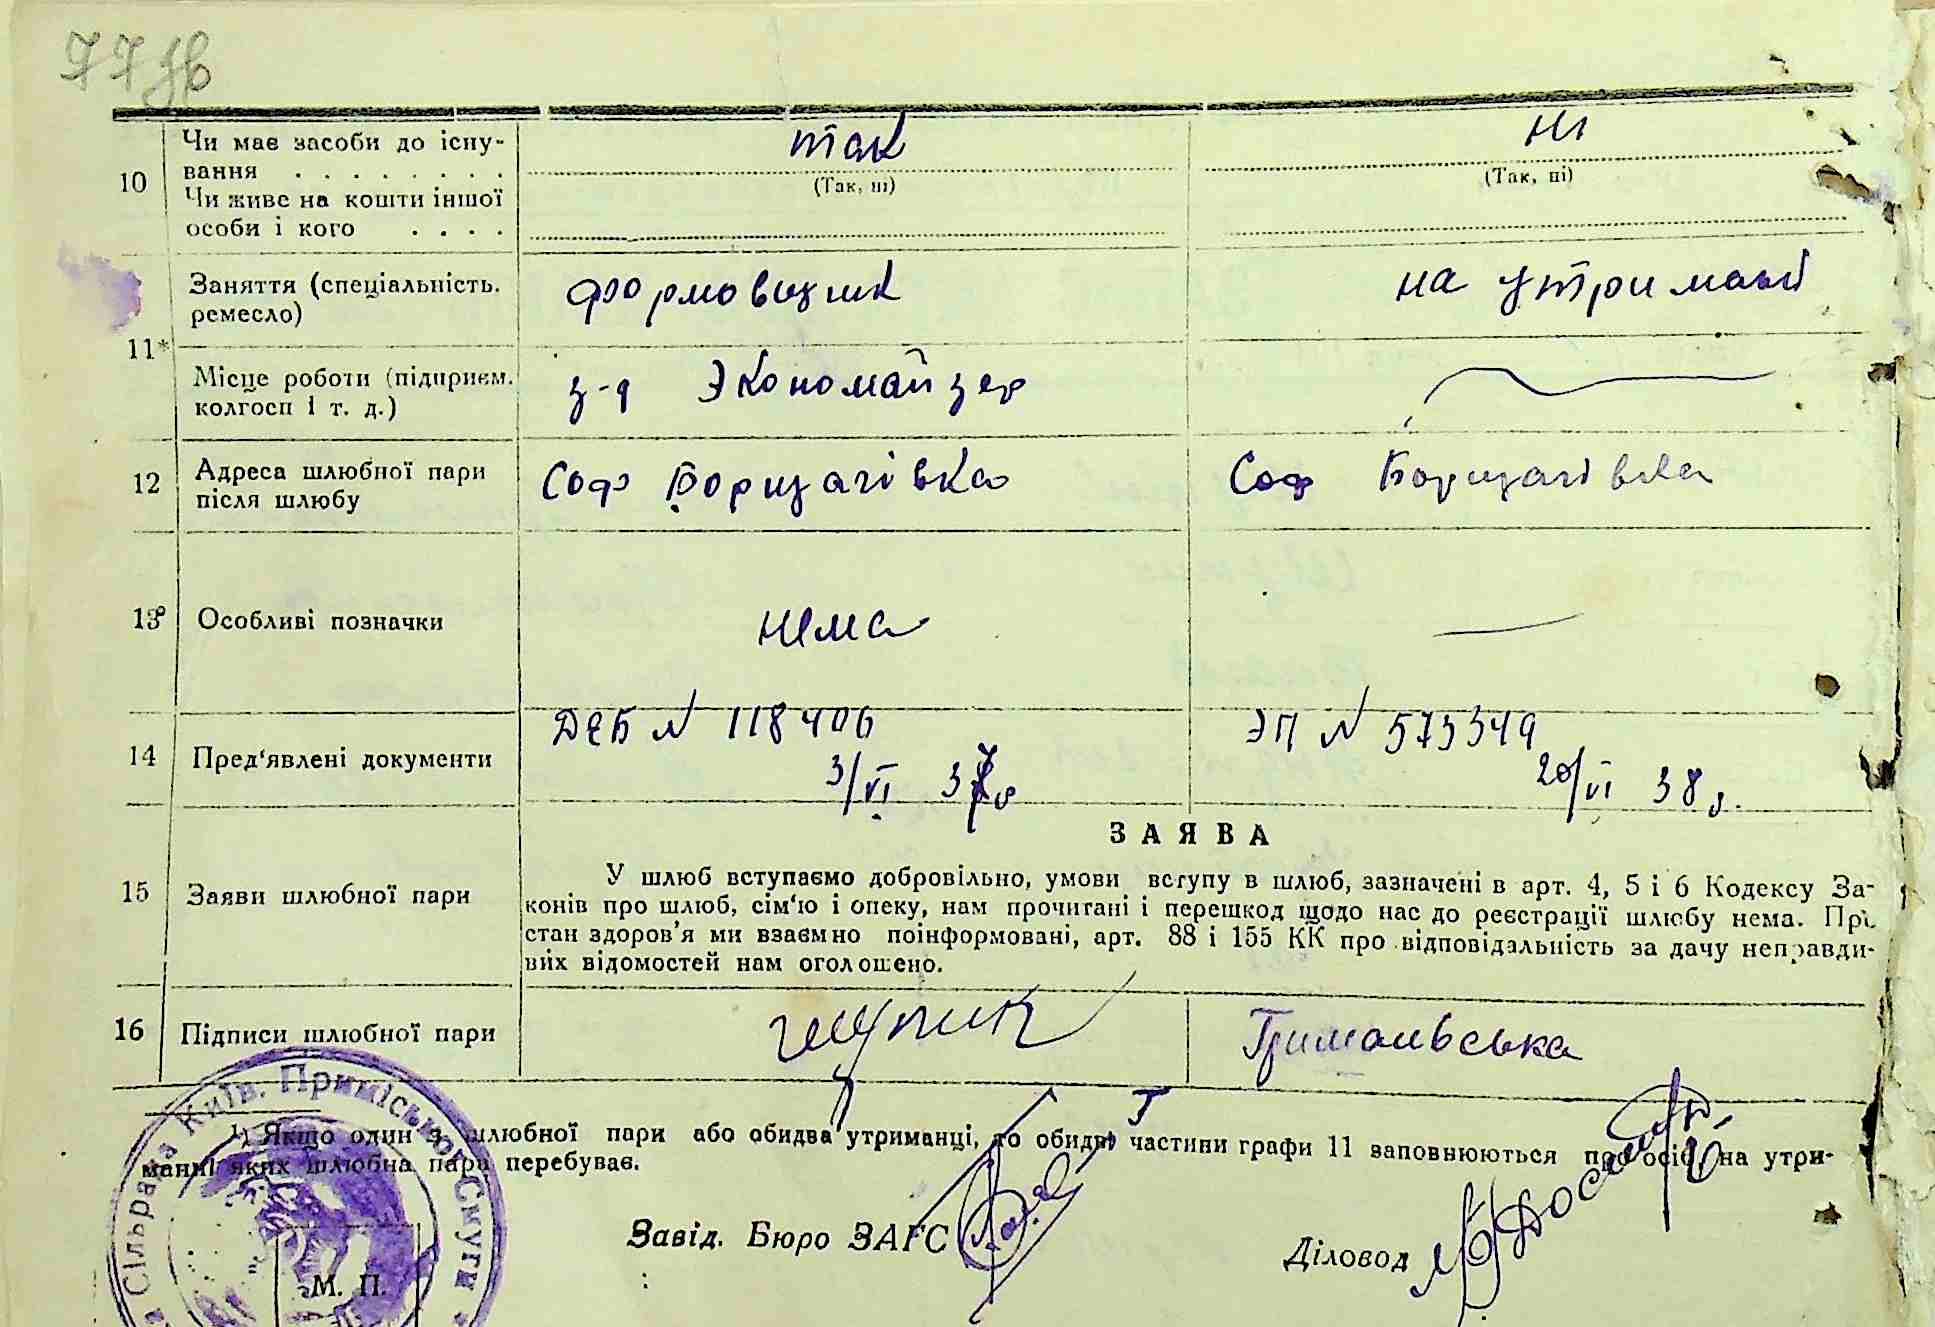 77 зв
10 Чи має засоби до існу-
вання . . . . . . . .
так
ні
(Так, ні)
(Так, ні)
Чи живе на кошти іншої
особи і кого . . . .
11* Заняття (спеціальність.
ремесло)
формовщик
на утриманні
Місце роботи (підприєм.
колгосп і т. д.)
з-д Экономайзер
12 Адреса шлюбної пари
після шлюбу
Соф Борщагівка
Соф Борщагівка
13 Особливі позначки
нема
—
14 Пред'явлені документи
ДЕБ № 118406
3/VI 37 г
ЭП № 573349
20/VI 38 г.
ЗАЯВА
15 Заяви шлюбної пари
У шлюб вступаємо добровільно, умови вступу в шлюб, зазначені в арт. 4, 5 і 6 Кодексу За-
конів про шлюб, сім'ю і опеку, нам прочитані і перешкод щодо нас до реєстрації шлюбу нема. Про
стан здоров'я ми взаємно поінформовані, арт. 88 і 155 КК про відповідальність за дачу неправди-
вих відомостей нам оголошено.
16 Підписи шлюбної пари
Гримальська
¹) Якщо один з шлюбної пари або обидва утриманці, то обидві частини графи 11 заповнюються про осіб, на утри-
манні яких шлюбна пара перебуває.
Сільрада Київ. Приміської Смуги
М. П.
Завід. Бюро ЗАГС
Діловод